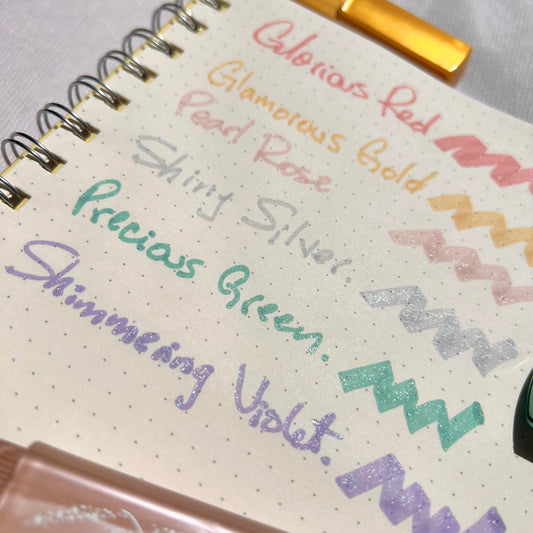 Glorious Red
Glamorous Gold
Pearl Rose
Shiny Silver.
Precious Green.
Shimmering Violet.